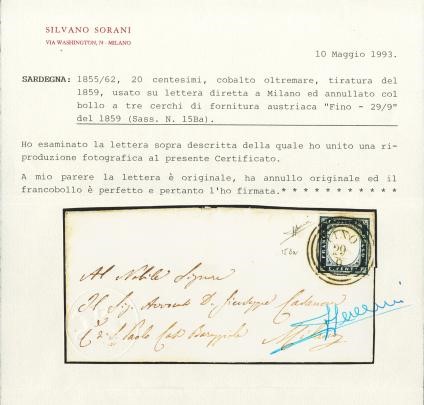 SILVANO SORANI
VIA WASHINGTON, N - MILANO
10 Maggio 1993.
SARDEGNA: 1855/62, 20 centesimi, cobalto oltremare, tiratura del
1859, usato su lettera diretta a Milano ed annullato col
bollo a tre cerchi di fornitura austriaca "Fino - 29/9"
del 1859 (Sass. N. 15Ba).
Ho esaminato la lettera sopra descritta della quale ho unito una ri-
produzione fotografica al presente Certificato.
A mio parere la lettera è originale, ha annullo originale ed il
francobollo è perfetto e pertanto l'ho firmata. * * * * * * * * * * *
FINO
29
9
15Ba
Al Nobile Signore
Il Sig. Avvocato D. Giuseppe Casanova
S. Paolo
Milano